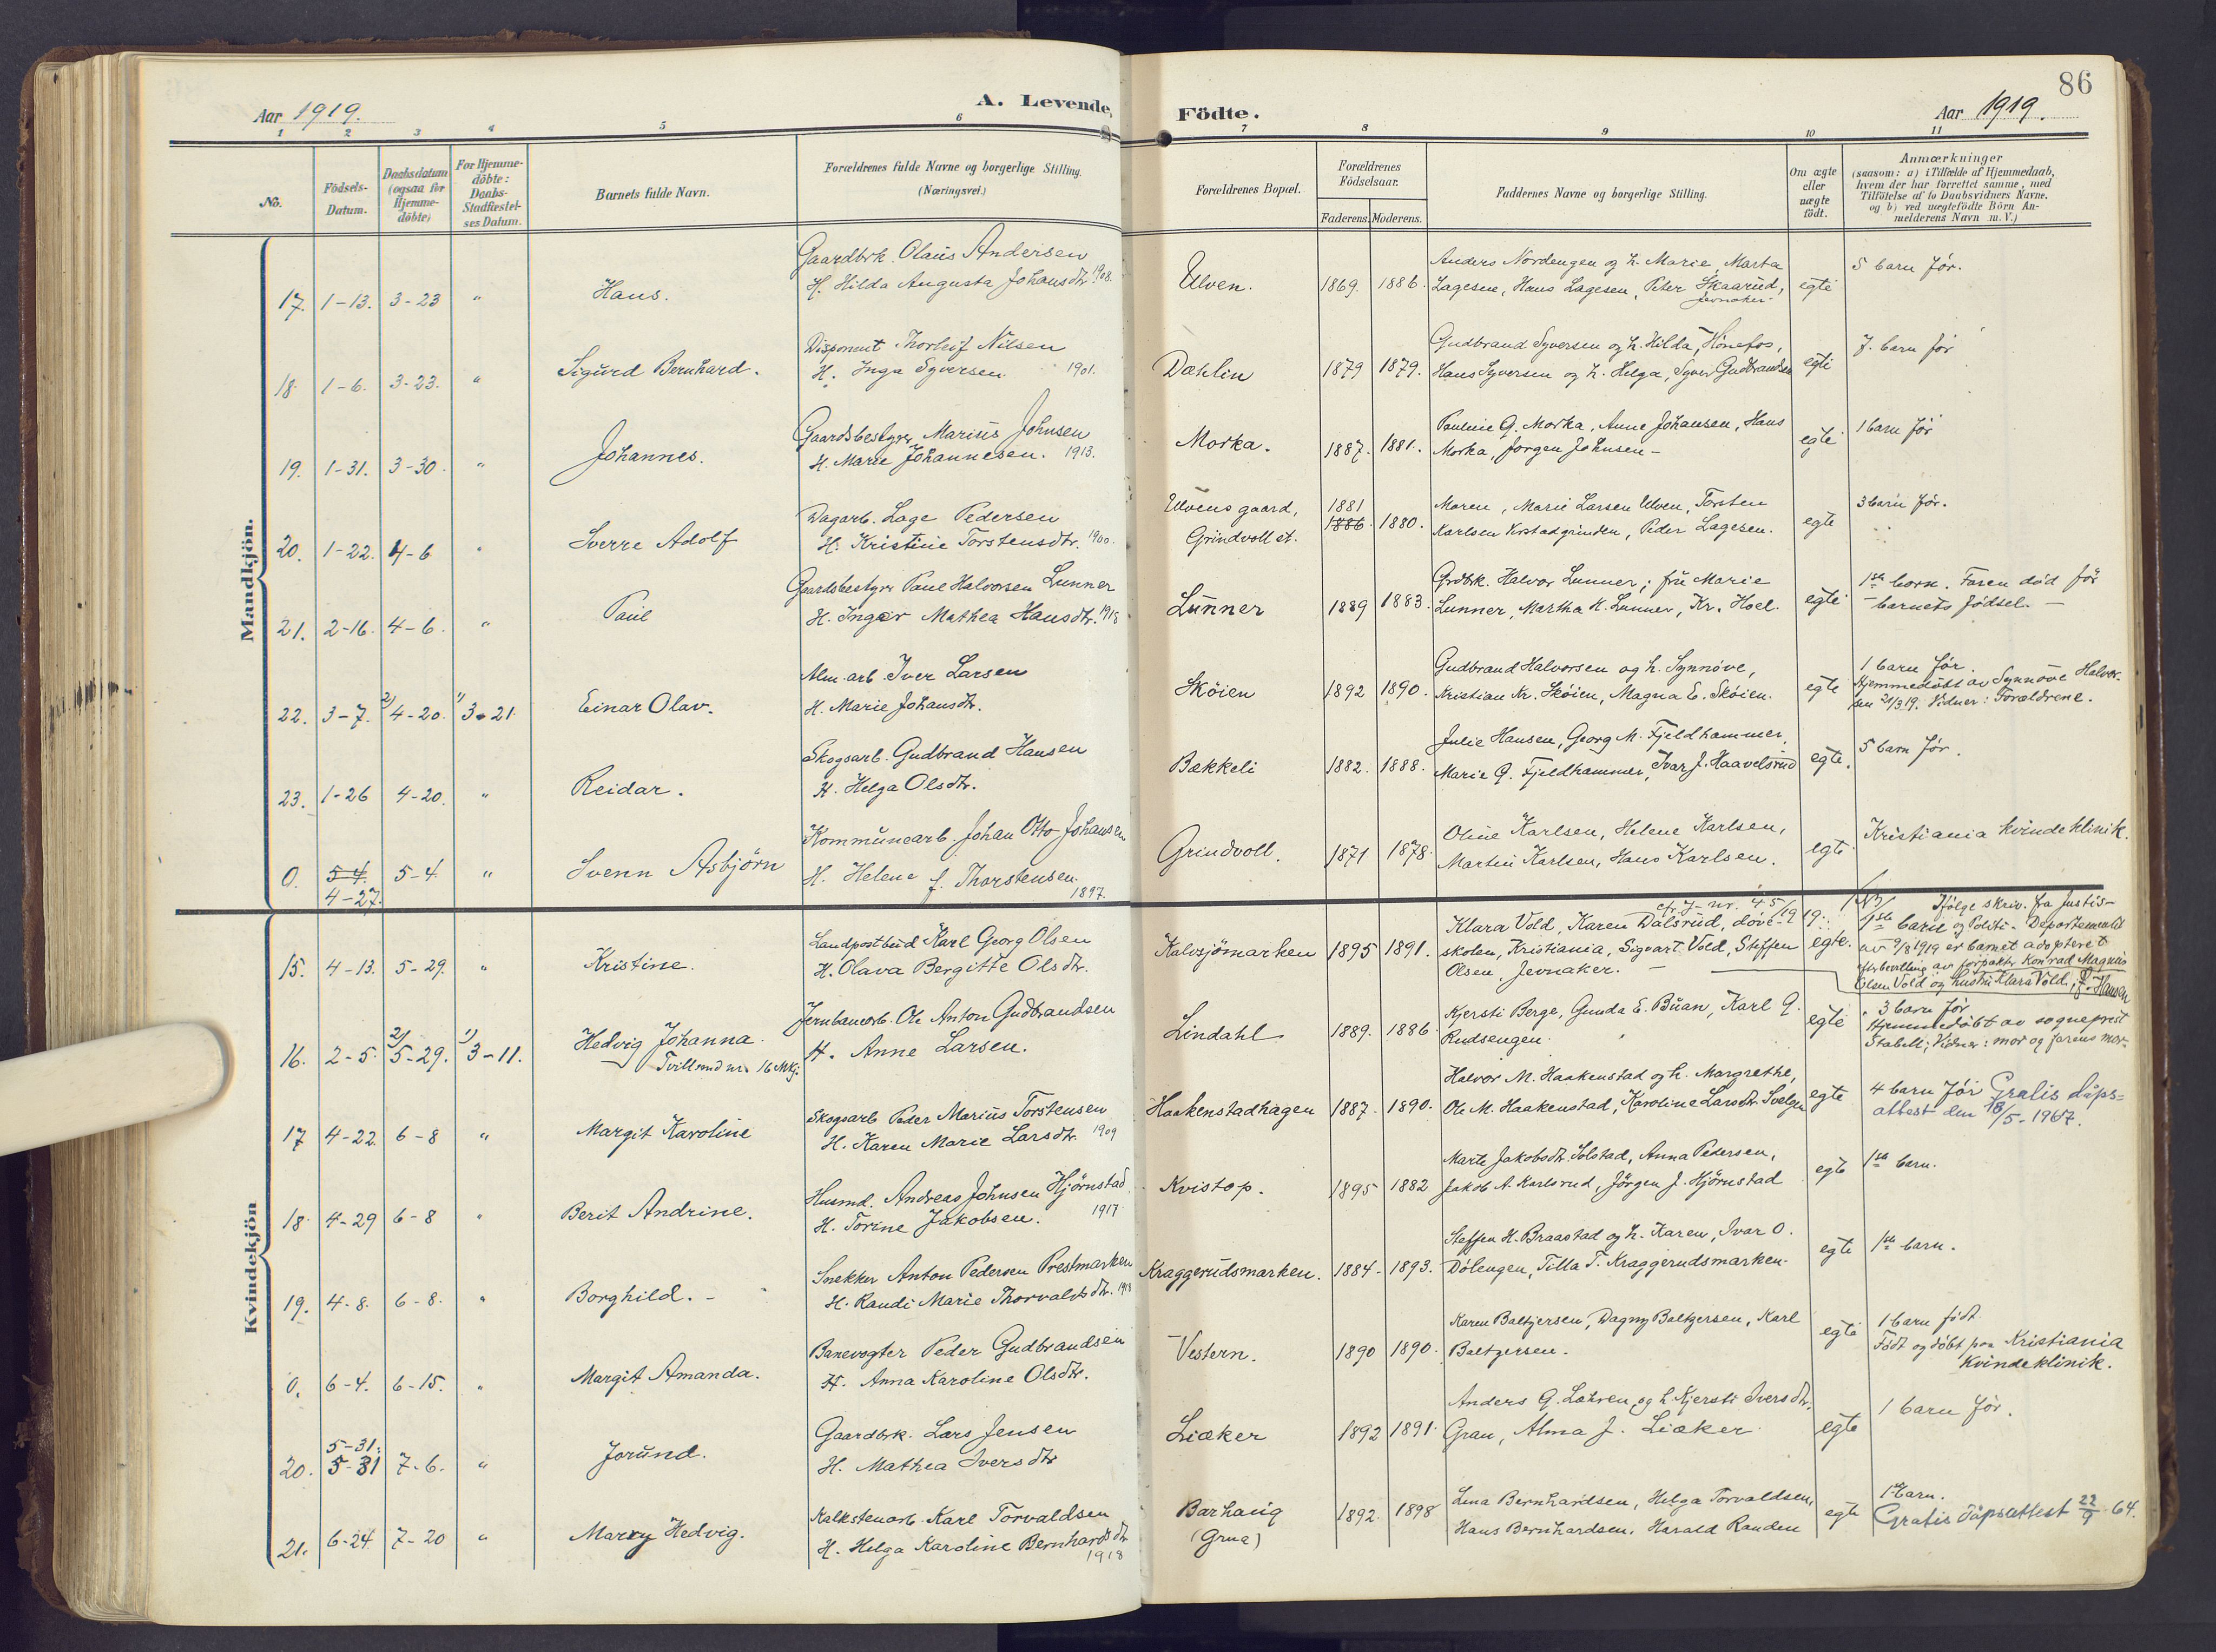 86
Aar 1919.
A. Levende
Födte.
Aar 1919.
1 2 3 4 5 6 7 8 9 10 11
No.
Födsels-Datum.
Daabsdatum (ogsaa for Hjemmedöbte)
For Hjemmedöbte: Daabs-Stadfæstelses Datum.
Barnets fulde Navn.
Forældrenes fulde Navne og borgerlige Stilling. (Næringsvei.)
Forældrenes Bopæl.
Forældrenes Födselsaar.
Faderens. Moderens.
Faddernes Navne og borgerlige Stilling.
Om ægte eller uægte födt.
Anmærkninger
(saasom: a) i Tilfælde af Hjemmedaab,
hvem der har forrettet samme, med
Tilföielse af to Daabsvidners Navne,
og b) ved uægtefödte Börn An-
melderens Navn m. V.)
Mandkjön.
17. 1-13. 3-23 " Hans.
Gaardbrk. Olaus Andersen
H. Hilda Augusta Johansdtr. 1908.
Ulven. 1869. 1886.
Anders Nordengen og h. Marie, Marta
Lagesen, Hans Lagesen, Peter Skaarud,
Jevnaker
egte
5 barn før.
18. 1-6. 3-23. " Sigurd Bernhard.
Disponent Thorleif Nilsen
H. Inga Syversen 1901.
Dæhlin 1879 1879.
Gudbrand Syversen og h. Hilda, Hönefos,
Hans Syversen og h. Helga, Syver Gudbrandsen
egte
7. barn før
19. 1-31. 3-30. " Johannes.
Gaardsbestyrer Marius Johnsen
H. Marie Johannesen. 1913.
Morka. 1887. 1881.
Pauline G. Morka, Anne Johansen, Hans
Morka, Jørgen Johnsen -
egte
1 barn før
20. 1-22. 4-6 " Sverre Adolf
Dagarb. Lage Pedersen
H. Kristine Torstensdtr. 1900.
Ulvens gaard,
Grindvoll st.
1881
1886. 1880.
Maren, Marie Larsen Ulven, Torsten
Karlsen Korstadgrinden, Peder Lagesen.
egte
3 barn før.
21. 2-16. 4-6. " Paul
Gaardsbestyrer Paul Halvorsen Lunner
H. Inger Mathea Hansdtr. 1918
Lunner 1889 1883.
Grdbrk. Halvor Lunner; fru Marie
Lunner, Martha K. Lunner, Kr. Hoel.
egte
1ste barn. Faren død før
- barnets fødsel. -
22. 3-7. 2) 4-20. 1) 3-21. Einar Olav.
Alm. arb. Iver Larsen
H. Marie Johansdtr.
Sköien 1892 1890.
Gudbrand Halvorsen og h. Synnöve,
Kristian Kr. Sköien, Magna E. Sköien.
egte
1 barn før.
Hjemmedöbt av Synnöve Halvor-
sen 21/3 19. Vidner: Forældrene.
23. 1-26 4-20. " Reidar.
Skogsarb. Gudbrand Hansen
H. Helga Olsdtr.
Bækkeli 1882. 1888.
Julie Hansen, Georg M. Fjeldhammer,
Marie G. Fjeldhammer, Ivar J. Haavelsrud
egte.
5 barn før.
0. 5-4. 5-4. " Svenn Asbjörn
4-27.
Kommunearb. Johan Otto Johansen
H. Helene f. Thorstensen.
1897.
Grindvoll. 1871 1878.
Oline Karlsen, Helene Karlsen,
Martin Karlsen, Hans Karlsen.
egte
Kristiania kvindeklinik.
Kvindekjön
15. 4-13. 5-29. " Kristine.
Landpostbud Karl Georg Olsen
H. Olava Bergitte Olsdtr.
Kalvsjömarken 1895 1891.
cfr. J-nr. 45/1919.
Klara Vold, Karen Dalsrud, döve-
skolen, Kristiania, Sigvart Vold, Steffen
Olsen, Jevnaker. -
egte.
Ifölge skriv. fra Justis-
1ste barn og Politi-Departementet
av 9/8 1919 er barnet adopteret
efter bevilling av forpakter Konrad Magnus
Olsen Vold og hustru Klara Vold, f. Hansen
16. 2-5. 2) 5-29. 1) 3-11. Hedvig Johanna.
Tvilling nr. 16 Mkj.
Jernbanearb. Ole Anton Gudbrandsen
H. Anne Larsen.
Lindahl 1889. 1886
Kjersti Berge, Gunda E. Buan, Karl G.
Rudsengen.
egte
3 barn før
Hjemmedöbt av sogneprest
Stabell; Vidner: mor og farens mor.
17 4-22. 6-8 " Margit Karoline
Skogsarb. Peder Marius Torstensen
H. Karen Marie Larsdtr. 1909
Haakenstadhagen 1887. 1890.
Halvor M. Haakenstad og h. Margrethe,
Ole M. Haakenstad, Karoline Larsdtr. Svelgen
egte
4 barn før Gratis dåps=
attest den 18/5-1967.
18. 4-29 6-8 " Berit Andrine.
Husmd. Andreas Johnsen Hjörnstad
H. Torine Jakobsen. 1917.
Kvistop. 1895 1882
Marte Jakobsdtr. Solstad, Anna Pedersen,
Jakob A. Karlsrud, Jörgen J. Hjörnstad
egte
1ste barn.
19. 4-8. 6-8. " Borghild. -
Snekker Anton Pedersen Prestmarken
H. Randi Marie Thorvaldsdtr. 1918
Kraggerudsmarken. 1884- 1893.
Steffen H. Braastad og h. Karen, Ivar O.
Dölengen, Tilla T. Kraggerudsmarken.
egte
1ste barn.
0. 6-4. 6-15. " Margit Amanda.
Banevogter Peder Gudbrandsen
H. Anna Karoline Olsdtr.
Vestern. 1890 1890.
Karen Baltzersen, Dagny Baltzersen, Karl
Baltzersen.
egte
1 barn födt.
Födt og döbt paa Kristiania
Kvindeklinik.
5-31.
20. 5-31 7-6. " Jorund.
Gaardbrk. Lars Jensen
H. Mathea Iversdtr
Liaker 1892 1891.
Anders G. Læhren og h. Kjersti Iversdtr.
Gran, Alma J. Liaker.
egte
1 barn før.
21. 6-24. 7-20 " Marry Hedvig.
Kalkstenarb. Karl Torvaldsen
H. Helga Karoline Bernhardsdtr
1918
Barhaug
(Grua)
1892. 1898
Lina Bernhardsen, Helga Torvaldsen,
Hans Bernhardsen, Harald Randen
egte
1ste barn.
Gratis dåpsattest 22/9-64.